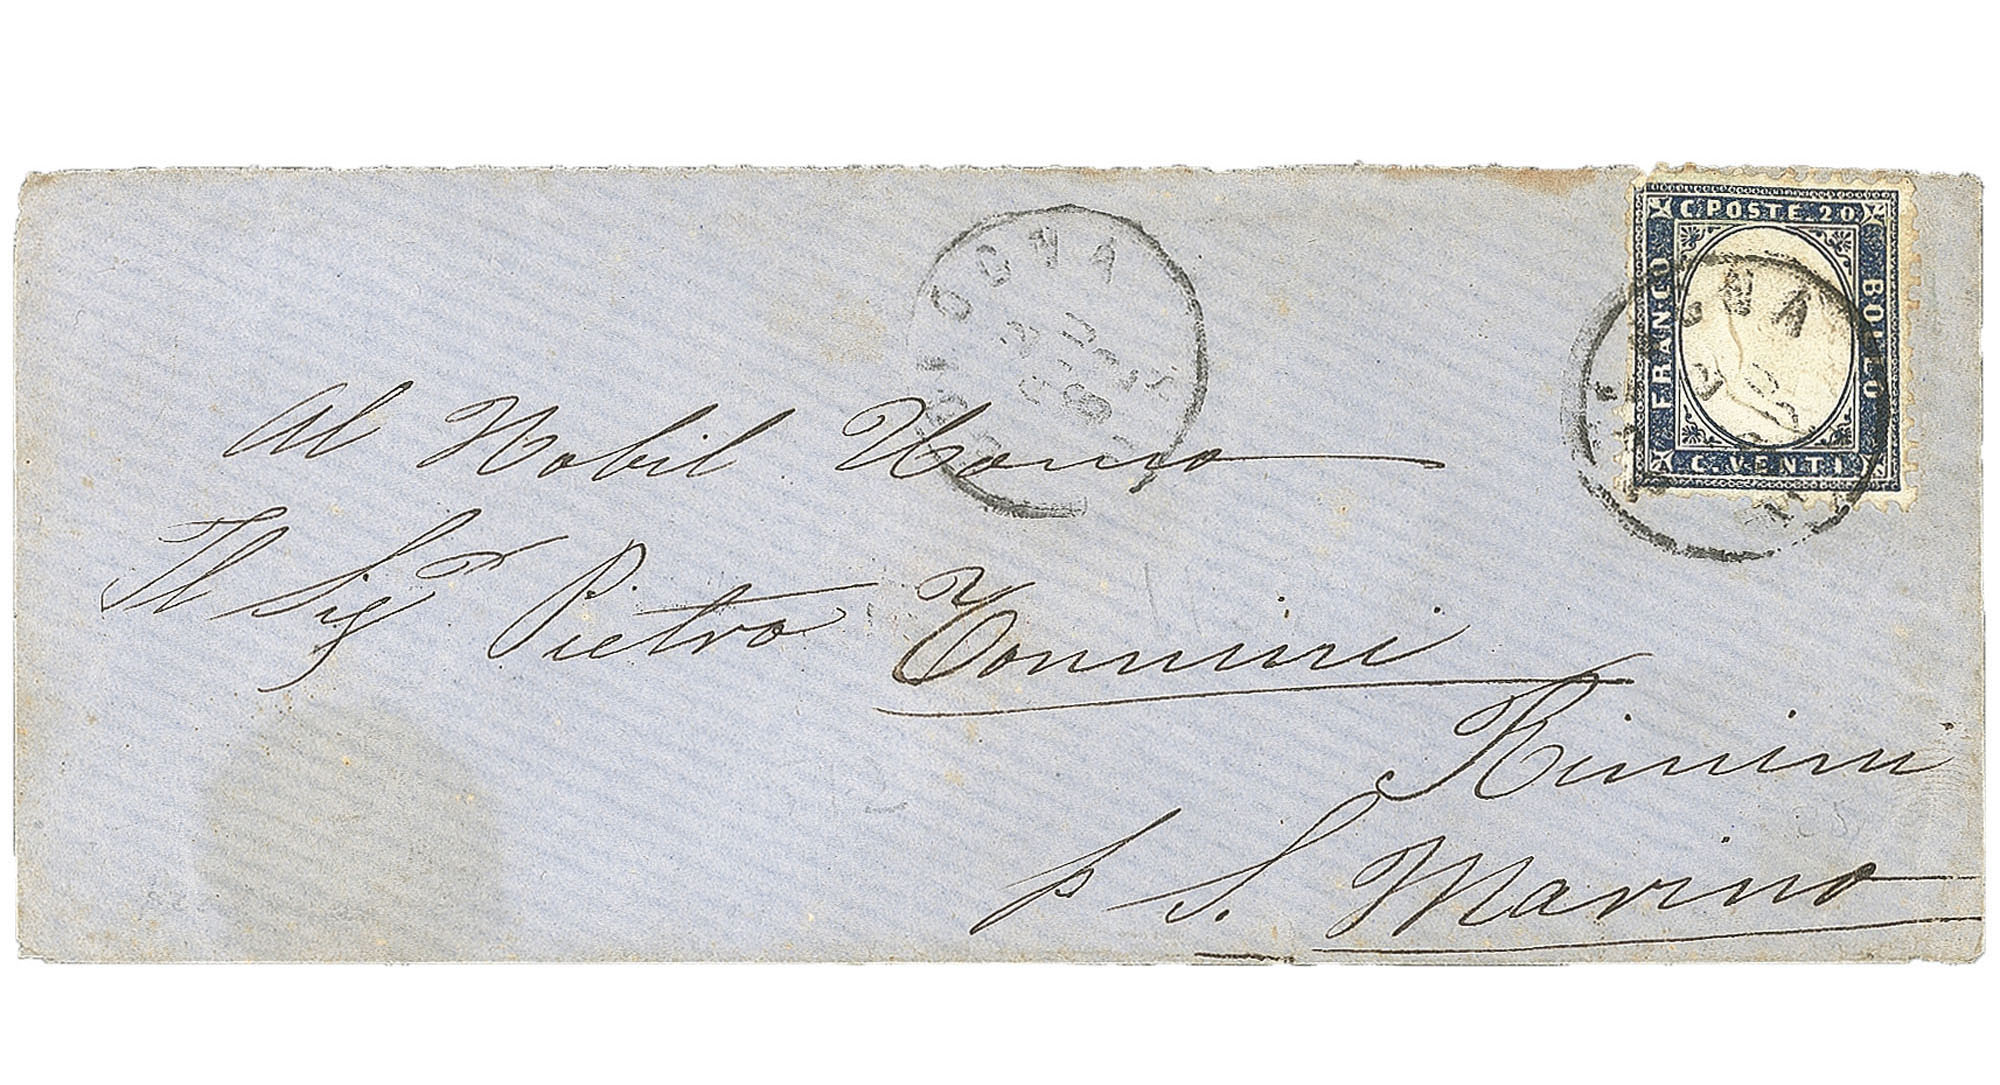 C. POSTE. 20
FRANCO
BOLLO
C. VENTI
Al Nobil Uomo
Il Sigr Pietro Tonnini
Rimini
p S. Marino